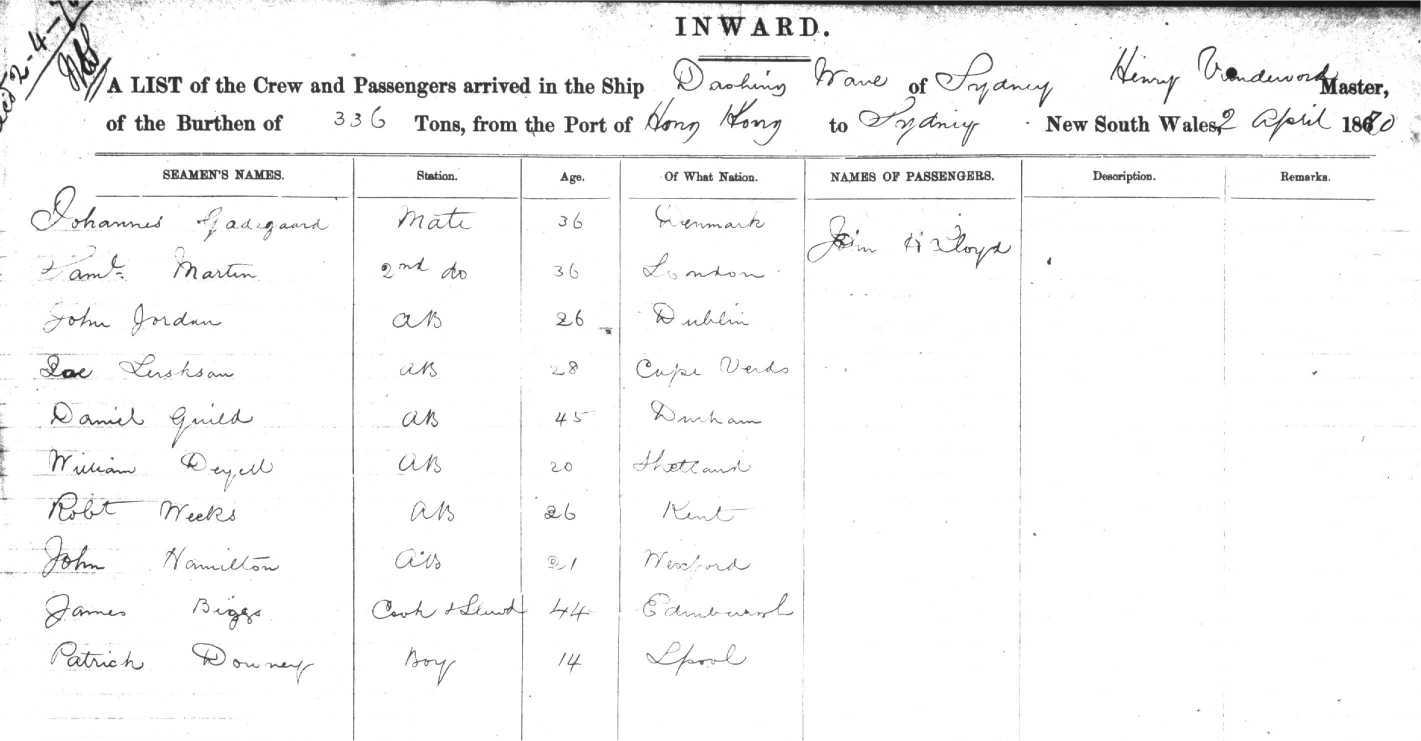 2-4-
INWARD.
A LIST of the Crew and Passengers arrived in the Ship Dashing Wave of Sydney Henry Master,
of the Burthen of 336 Tons, from the Port of Hong Kong to Sydney New South Wales, 2 April 1880
SEAMEN'S NAMES. Station. Age. Of What Nation. NAMES OF PASSENGERS. Description. Remarks.
Johannes Mate 36 Denmark John H Floyd
Saml Martin 2nd do 36 London
John Jordan AB 26 Dublin
AB 28 Cape Verds
Daniel Guild AB 45 Durham
William Deyell AB 20 Shetland
Robt Weeks AB 26 Kent
John Hamilton AB 21 Wexford
James Biggs Cook & Stewd 44 Edinburgh
Patrick Downey Boy 14 Lpool